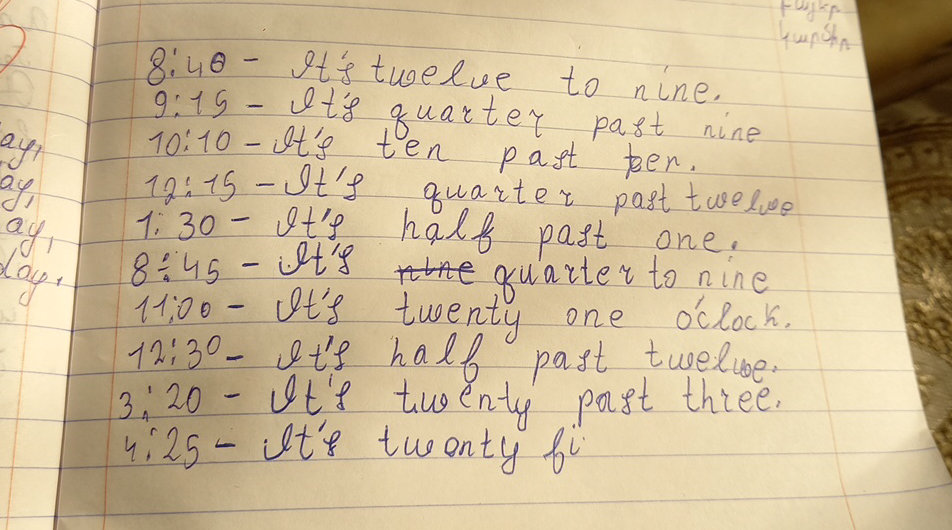 8:40 - It's twelve to nine.
9:15 - It's quarter past nine
10:10 - It's ten past ten.
12:15 - It's quarter past twelve
1:30 - It's half past one.
8:45 - It's nine quarter to nine
11:00 - It's twenty one o'clock.
12:30 - It's half past twelve.
3:20 - It's twenty past three.
4:25 - It's twenty fi
ay,
ay,
ay,
day.